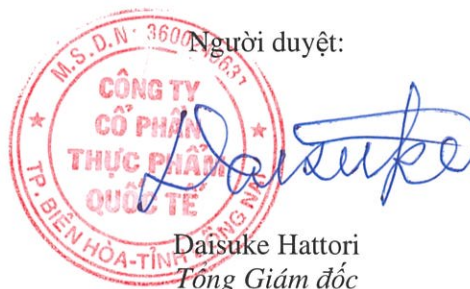 Người duyệt:
M.S.D.N: 3600
CÔNG TY
CỔ PHẦN
THỰC PHẨM
QUỐC TẾ
TP. BIÊN HÒA-TỈNH ĐỒNG NAI
Daisuke
Daisuke Hattori
Tổng Giám đốc